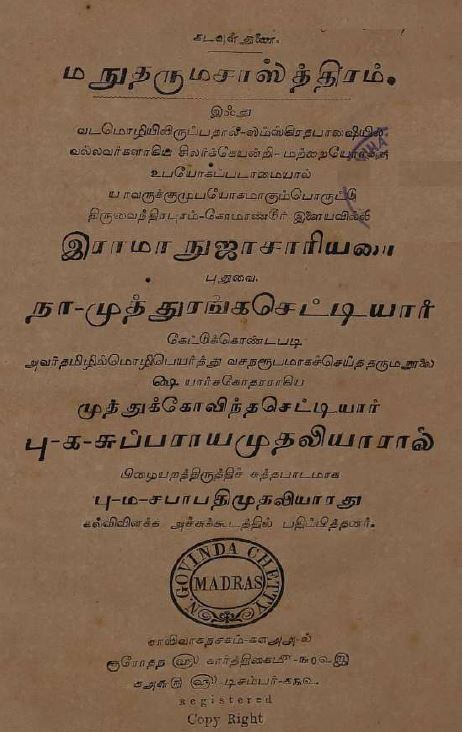 கடவுள் துணை.
மநுதருமசாஸ்த்திரம்.
இஃது
வடமொழியிலிருப்பதால்-ஸம்ஸ்கிரதபாஷையில்
வல்லவர்களாகிய சிலர்க்கேயன்றி-மற்றையோர்க்கு
உபயோகப்படாமையால்
யாவருக்குமுபயோகமாகும்பொருட்டு
திருவைந்திரபுரம்-கோமாண்டூர் இளையவில்லி
இராமாநுஜாசாரியரை
புதுவை.
நா-முத்துரங்கசெட்டியார்
கேட்டுக்கொண்டபடி
அவர்தமிழில்மொழிபெயர்த்து வசநரூபமாகச்செய்ததருமநூலை
ஷை யார்சகோதரராகிய
முத்துக்கோவிந்தசெட்டியார்
பு-க-சுப்பராயமுதலியாரால்
பிழையறத்திருத்திச் சுத்தபாடமாக
பு-ம-சபாபதிமுதலியாரது
கல்விவிளக்க அச்சுக்கூடத்தில் பதிப்பித்தனர்.
N. GOVINDA CHETTY
MADRAS
சாலிவாகநசகம்-
டிசம்பர்
Registered
Copy Right